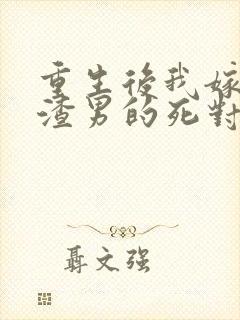 重生後我嫁
渣男的死對
聶文強